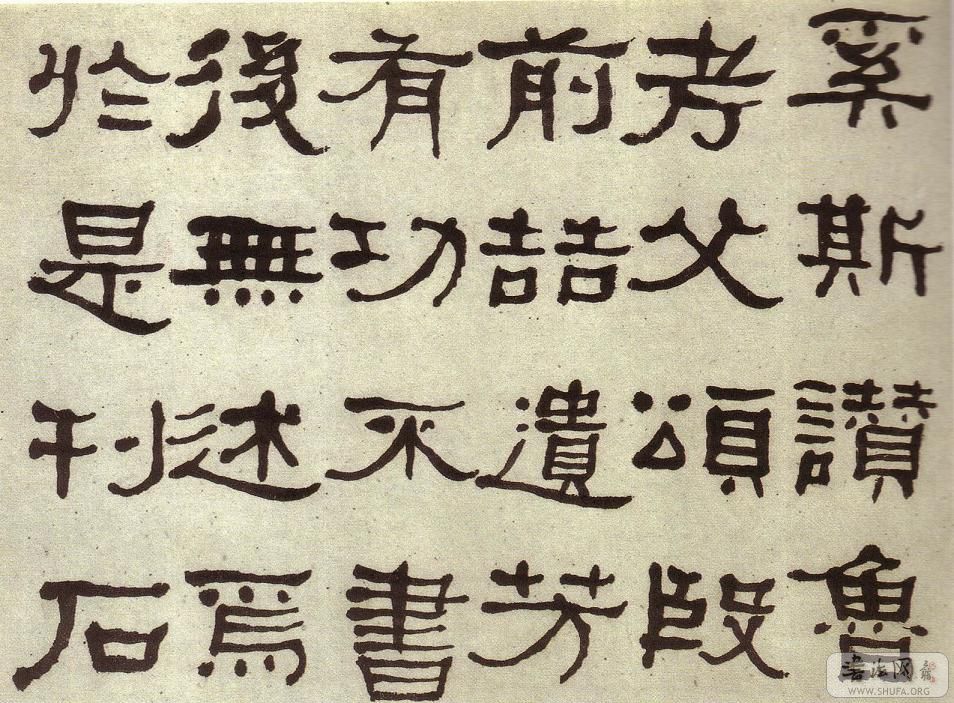 奚斯讚魯
考父頌殷
前喆遺芳
有功不書
後無述焉
於是刊石
书法网
WWW.SHUFA.ORG